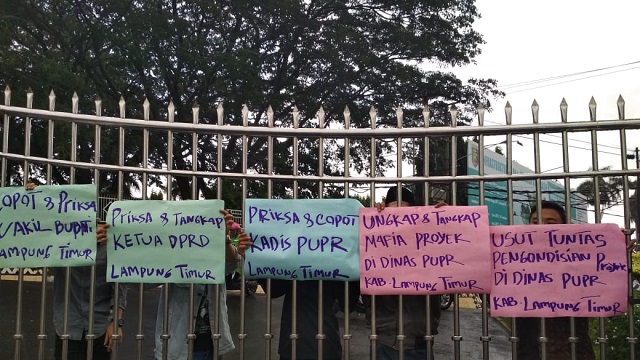 COPOT & PRIKSA
WAKIL BUPATI
LAMPUNG TIMUR
PRIKSA & TANGKAP
KETUA DPRD
LAMPUNG TIMUR
PRIKSA & COPOT
KADIS PUPR
LAMPUNG TIMUR
UNGKAP & TANGKAP
MAFIA PROYEK
DI DINAS PUPR
KAB. LAMPUNG TIMUR
USUT TUNTAS
PENGONDISIAN Proyek
DI DINAS PUPR
KAB. LAMPUNG TIMUR